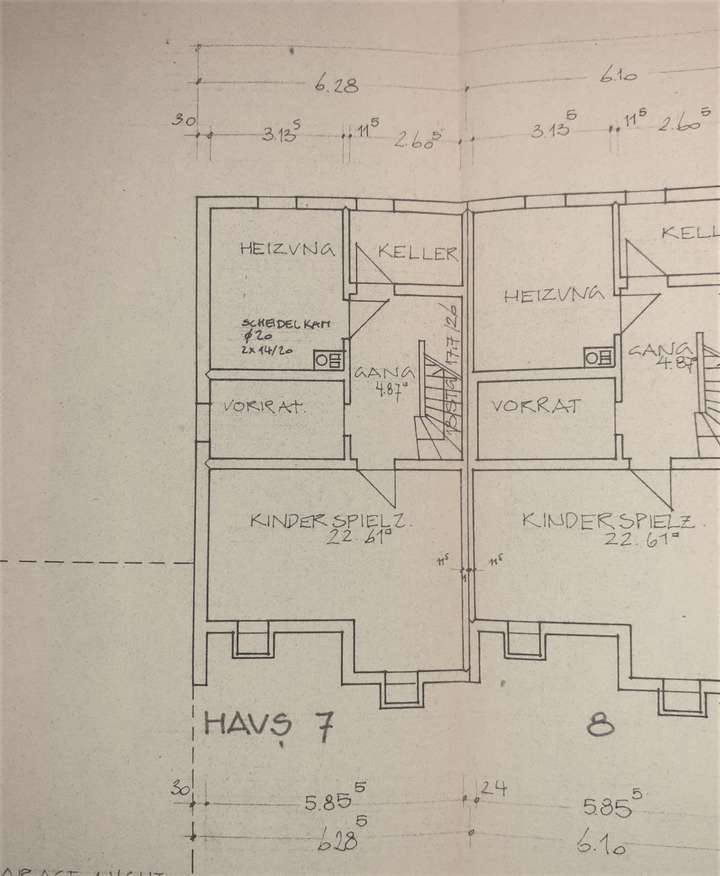 6.28 6.10
30 3.13⁵ 11⁵ 2.60⁵ 3.13⁵ 11⁵ 2.60⁵
HEIZUNG KELLER HEIZUNG KELL
SCHEIDEL KAM
ø 20
2x 14/20
GANG
4.87
18 STG 17.7/26
GANG
4.87
VORRAT. VORRAT
KINDERSPIELZ.
22.61
KINDERSPIELZ.
22.61
11⁵ 1 11⁵
HAUS 7 8
30 5.85⁵ 24 5.85⁵
6.28⁵ 6.10